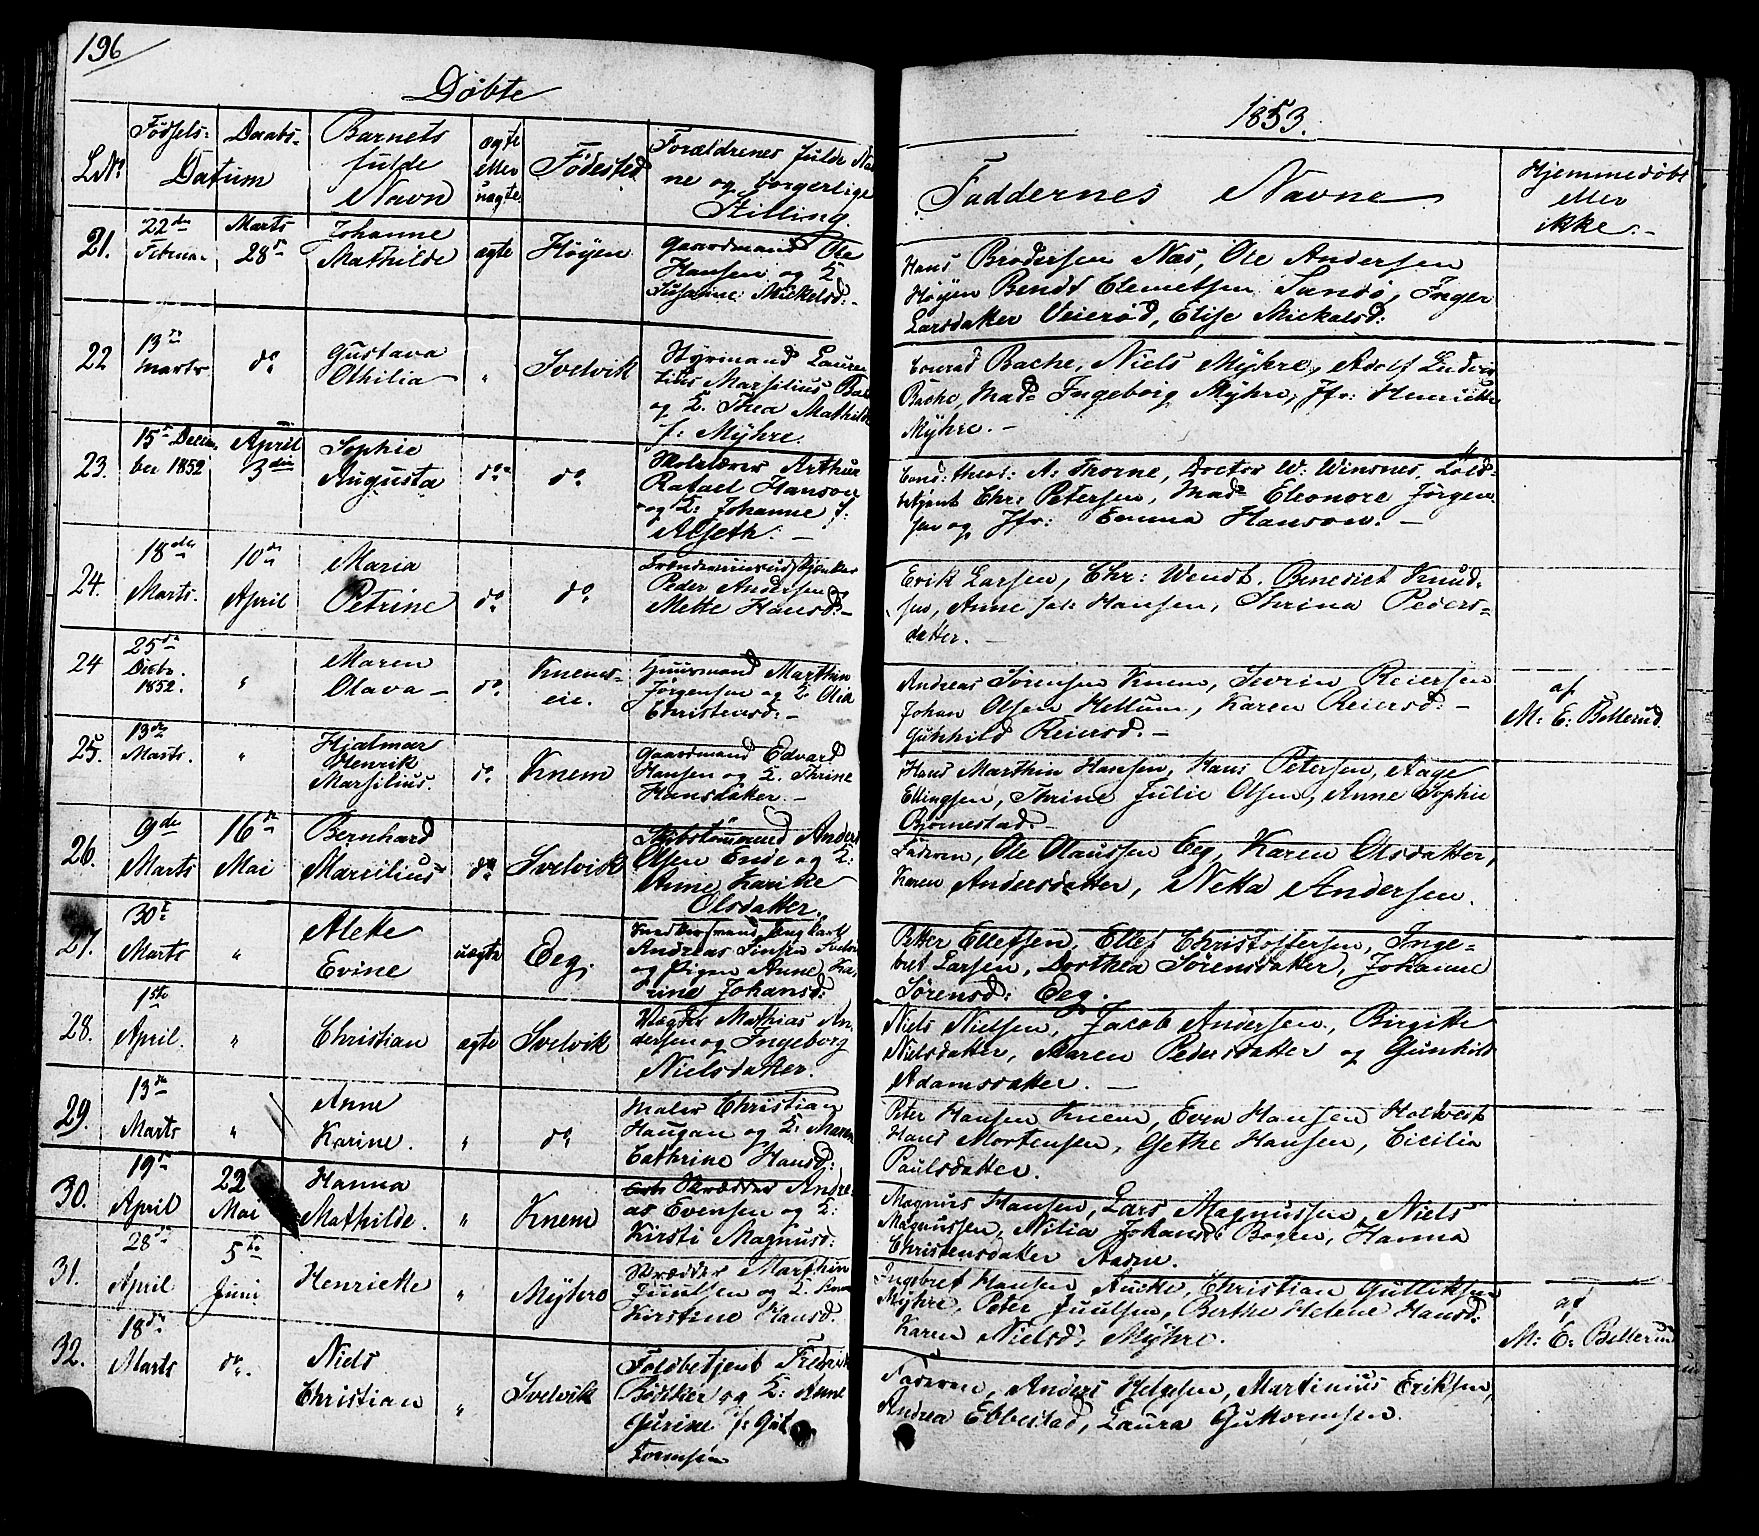 196
Døbte
1853.
LNo
Fødsels-
Daabs-
Datum
Barnets
fulde
Navn
ægte
eller
uægte
Fødested
Forældrenes fulde Nav
ne og borgerlige
Stilling
Faddernes Navne
Hjemmedøbt
eller
ikke.-
21.
22de
Februar
Marts
28de
Johanne
Mathilde
ægte
Höyen
Gaardmand Ole
Hansen og K.
Susanne Mickelsd:-
Hans Brodersen Næs, Ole Andersen
Höyen Bendt Clemetsen Sandö, Inger
Larsdatter Veierød, Elise Mickelsd:
22
13de
Marts
do
Gustava
Othilia
"
Svelvik
Styrmand Lauren
tius Marsilius Bache
og K. Thea Mathilde
f: Mÿhre.
Conrad Bache, Niels Mÿhre, Adolf Ludvig
Bache, Mad: Ingeborg Mÿhre, Jfr: Henriette
Mÿhre.-
23.
15de Decem
ber 1852
April
3die
Sophie
Augusta
do
do
Skolelærer Arthur
Rafael Hanson
og K: Johanne f:
Alseth.-
Cand: theol: A. Thorne, Doctor W: Winsnes, Told-
betjent Chr: Petersen, Mad: Eleonore Jörgen
sen og Jfr: Emma Hanson.-
24.
18de
Marts.
10de
April
Maria
Petrine
do
do
Peder Andersen og
Mette Hansd:-
Erik Larsen, Chr: Wendt, Benedict Knud-
sen, Anne Hansen, Thrina Peders-
datter.-
24
25de
Decbr.
1852.
"
Maren
Olava
do
Knems-
eie.
Huusmand Marthin
Jörgensen og K. Olia
Christensd:-
Andreas Sörensen Knem, Severin Reiersen
Johan Olsen Hellum, Karen Reiersd:-
Gunhild Reiersd.-
af
M: E: Bellerud.
25.
13de
Marts.
"
Hjalmar
Henrik
Marsilius.
do
Knem
Gaardmand Edvard
Hansen og K. Thrine
Hansdatter.-
Hans Marthin Hansen, Hans Petersen, Aage
Ellingsen, Thrine Julie Olsen, Anne Sophie
Björnestad.-
26.
9de
Marts
16de
Mai
Bernhard
Marsilius
do
Svelvik
Skibstömmermand Anders
Olsen Ende og K:
Anne Karine
Olsdatter.
Faderen, Ole Olaussen Eeg, Karen Olsdatter,
Karen Andersdatter, Netta Andersen.
27.
30te
Marts
"
Alette
Evine
uægte
Eeg.
Andreas
og Pigen Anne Ka
rine Johansd:
Petter Ellefsen, Ellef Christoffersen, Inge-
bret Larsen, Dorthea Sörensdatter, Johanne
Sörensd: Eeg.
28.
1ste
April.
"
Christian
ægte
Svelvik
Mathias An
dersen og Ingeborg
Nielsdatter.
Niels Nielsen, Jacob Andersen, Birgitte
Nielsdatter, Maren Pedersdatter og Gunhild
Adamsdatter.-
29.
13de
Marts
"
Anne
Karine.
"
do
Maler Christian
Haugan og K: Maren
Cathrine Hansd:
Peter Hansen Knem, Even Hansen
Hans Mortensen, Gethe Hansen, Cicilia
Paulsdatter.
30.
19de
April
22
Mai
Hanna
Mathilde.
"
Knem
Skrædder Andre-
as Evensen og K:
Kirsti Magnusd:
Magnus Hansen, Lars Magnussen, Niels
Magnussen, Nilia Johansd: Bogen, Hanna
Christensdatter
31.
28de
April
5te
Juni
Henriette
"
Mÿhre
Skrædder Marthin
Juulsen og K.
Kirstine Hansd.
Ingebret Hansen Aucke, Christian Gulliksen
Mÿhre, Peter Juulsen, Berthe Helene Hansd:
Karen Nielsd: Mÿhre.
af
M: E: Bellerud
32.
18de
Marts
do.
Niels
Christian
"
Svelvik
Toldbetjent Fredrik
Bödtker og K: Anne
Gurine f: Gut
tormsen
Faderen, Anders Helgesen, Martinius Eriksen,
Andrea Ebbestad, Laura Guttormsen.